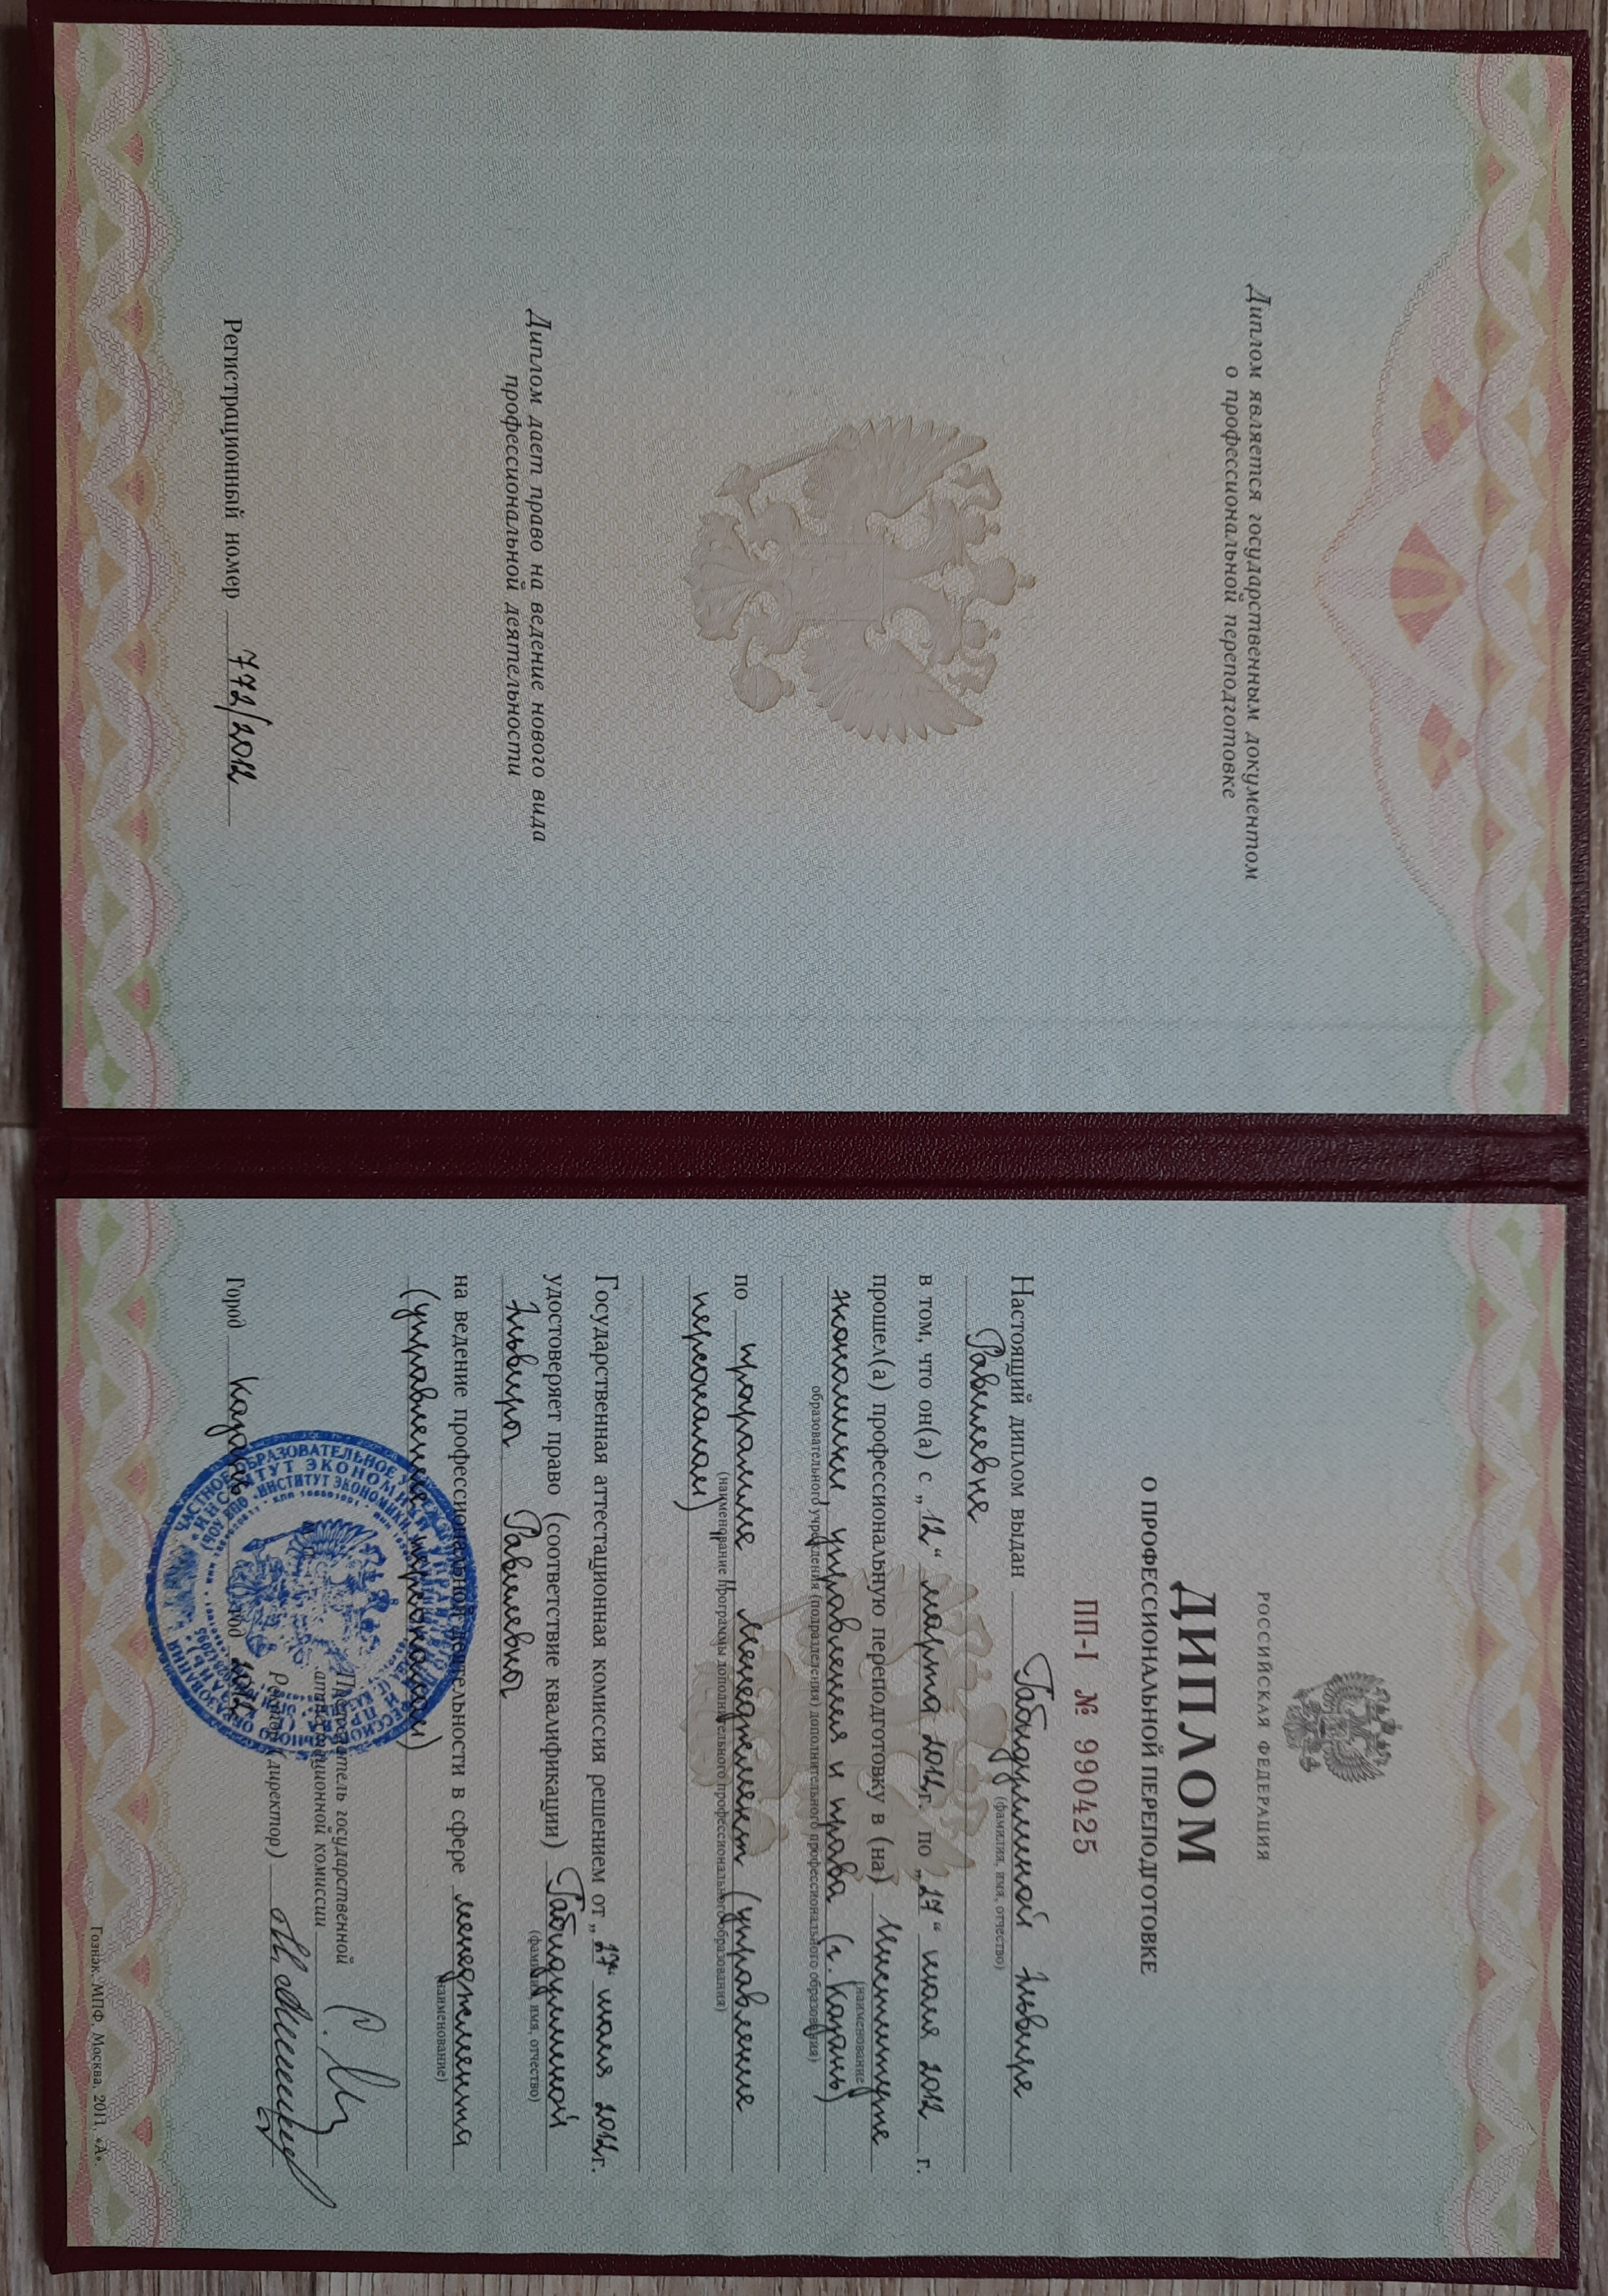 Диплом является государственным документом
о профессиональной переподготовке
Диплом дает право на ведение нового вида
профессиональной деятельности
Регистрационный номер 772/2012
РОССИЙСКАЯ ФЕДЕРАЦИЯ
ДИПЛОМ
О ПРОФЕССИОНАЛЬНОЙ ПЕРЕПОДГОТОВКЕ
ПП-I № 990425
Настоящий диплом выдан Габидуллиной Эльвире
(фамилия, имя, отчество)
Равилевне
в том, что он(а) с „12“ марта 2012 г. по „17“ июля 2012 г.
прошел(а) профессиональную переподготовку в (на) Институте
(наименование
экономики, управления и права (г. Казань)
образовательного учреждения (подразделения) дополнительного профессионального образования)
по программе менеджмент (управление
(наименование программы дополнительного профессионального образования)
персоналом)
Государственная аттестационная комиссия решением от „17“ июля 2012 г.
удостоверяет право (соответствие квалификации) Габидуллиной
(фамилия, имя, отчество)
Эльвиры Равилевны
на ведение профессиональной деятельности в сфере менеджмента
(наименование)
(управление персоналом)
Председатель государственной
аттестационной комиссии
Ректор (директор)
Город Казань год 2012
ЧАСТНОЕ ОБРАЗОВАТЕЛЬНОЕ
ИНСТИТУТ ЭКОНОМИКИ
Гознак, МПФ, Москва, 2011, «А».